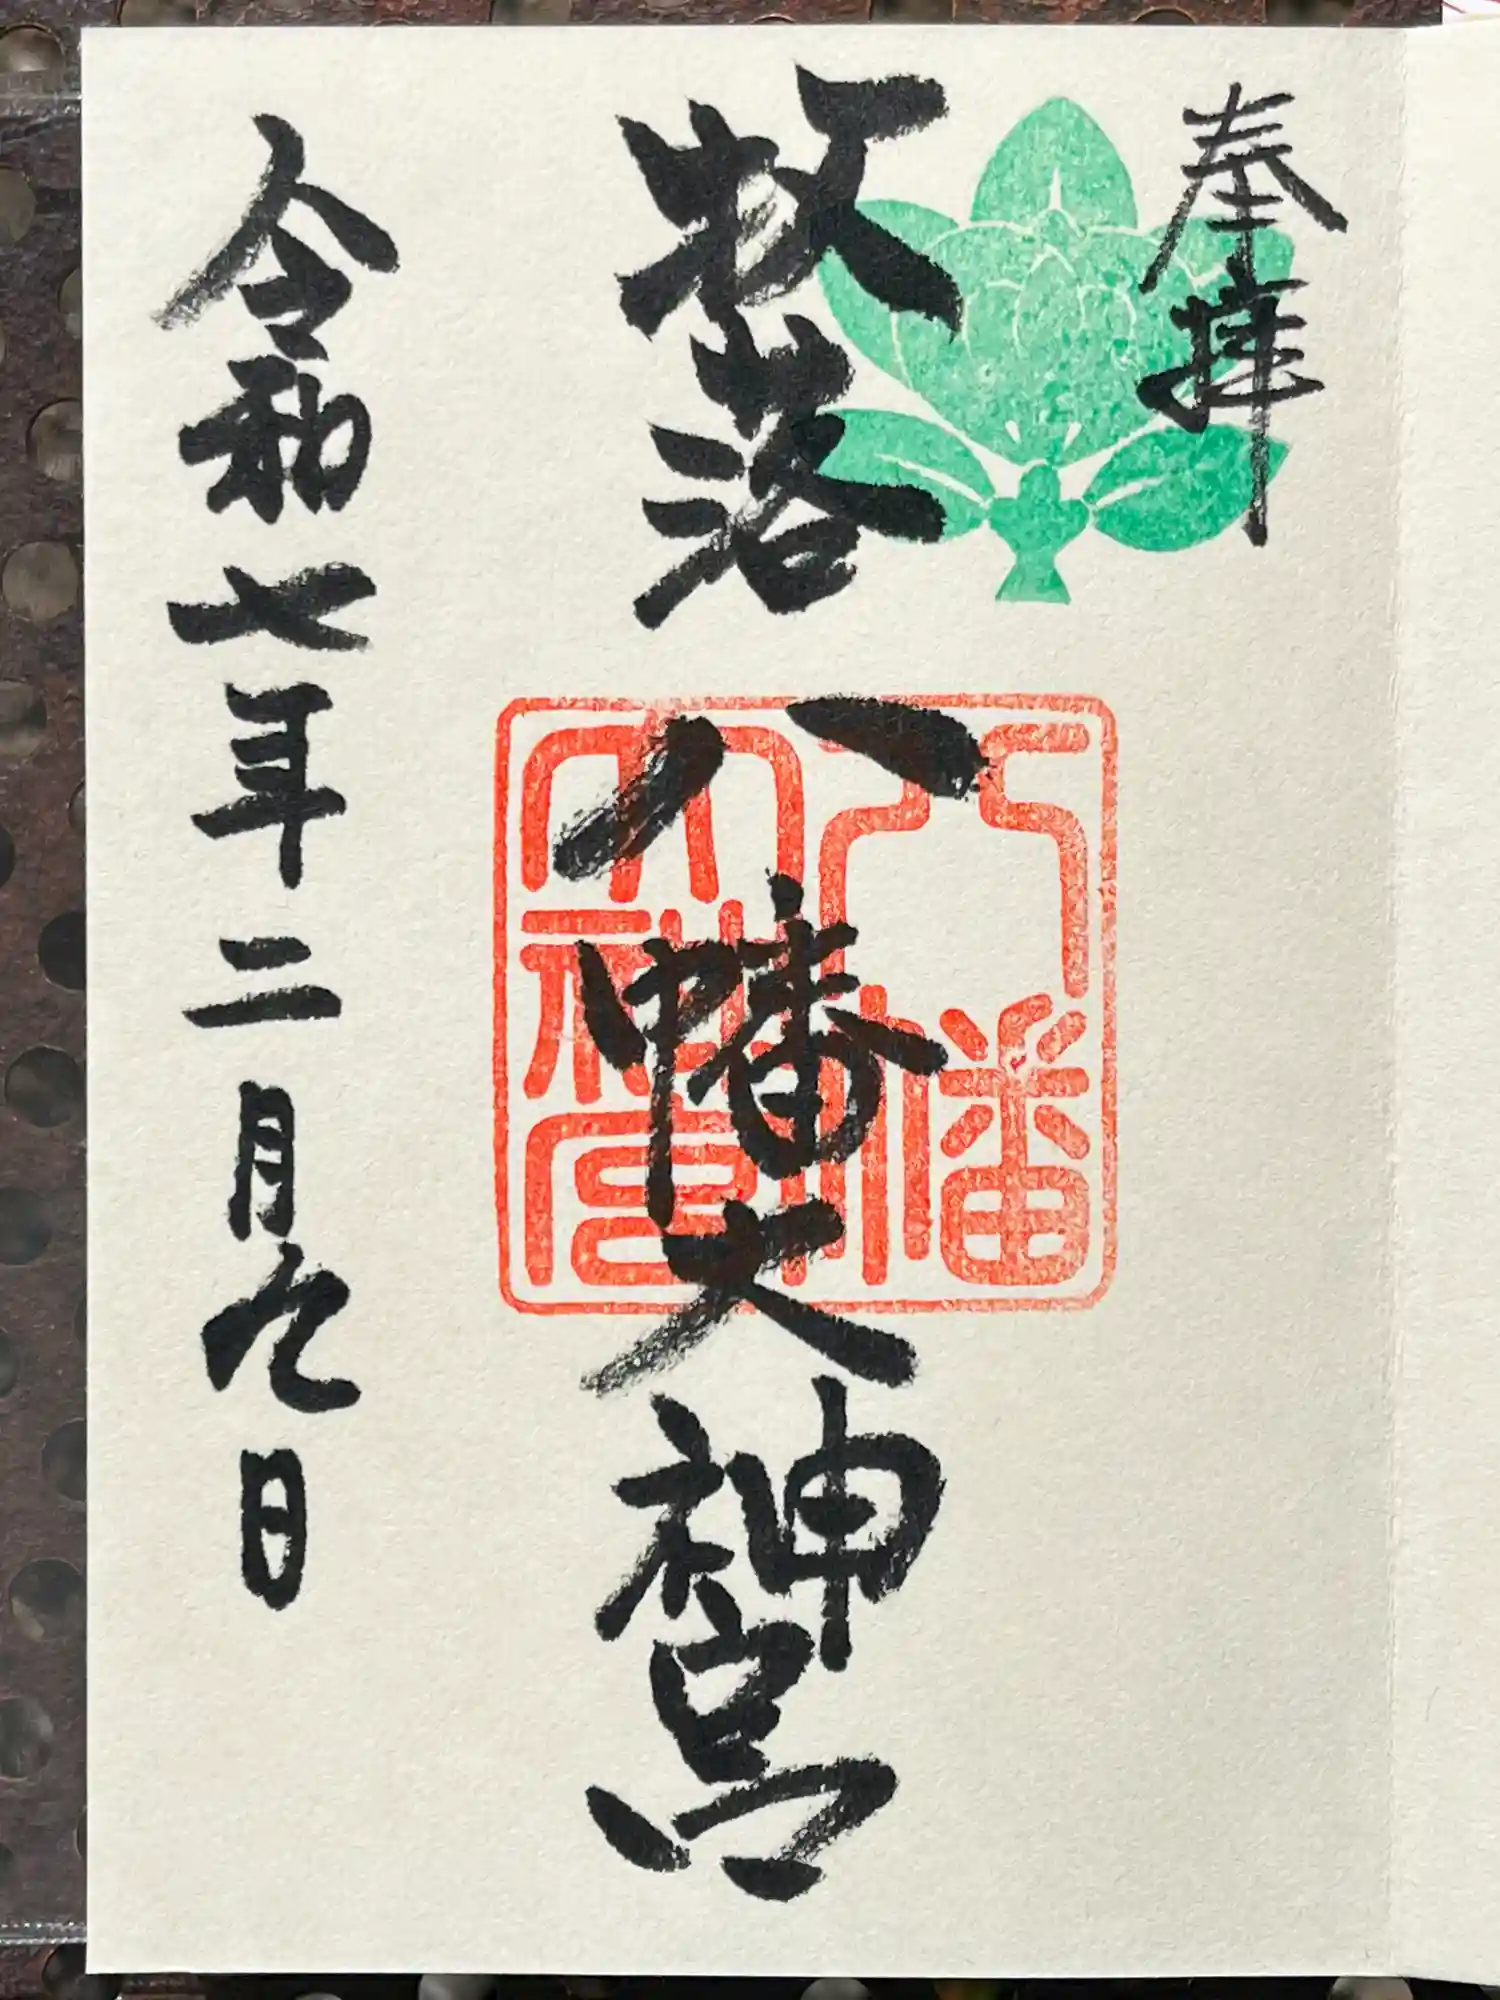 奉拝
牧落八幡大神宮
八幡
大神宮
令和七年二月九日